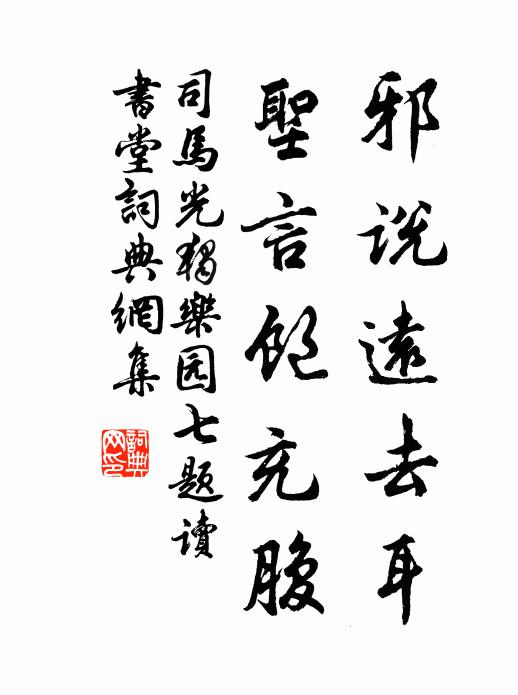 邪説遠去耳
聖言飽充腹
司馬光獨樂园七题讀
書堂詞典網集
詞典
网印